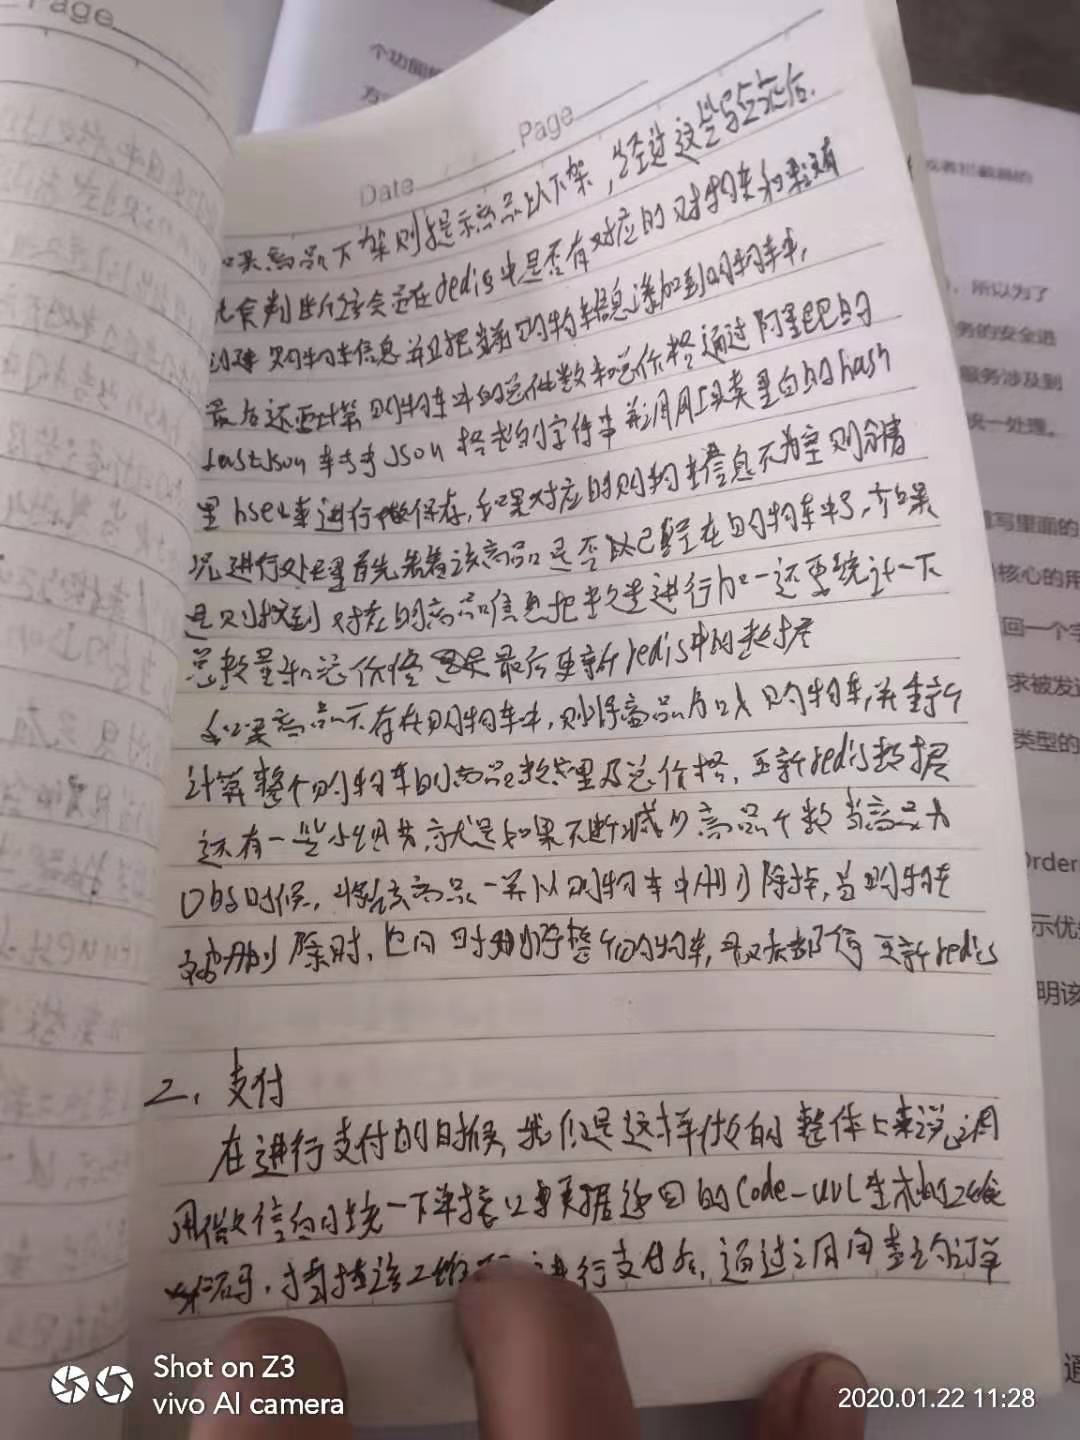 Page
Date
Page
如果商品下架则提示商品以下架，经过这些验证后，
就会判断是在redis中是否有对应的购物车如果没有
创建购物车信息并且把当前购物车信息添加到购物车中，
最后还要计算购物车中的总件数和总价格通过阿里巴巴的
fastJson 转为Json 格式的字符串并调用工具类里面的hash
里hset来进行做保存，如果对应的购物车信息不为空则分情
况进行处理首先看该商品是否以已经在购物车中了，如果
是则找到对应的商品信息把数量进行加一还要统计一下
总数量和总价格最后更新redis中的数据
如果商品不存在购物车中，则将商品加入购物车，并重新
计算整个购物车的商品数量及总价格，更新redis数据
还有一些小细节，就是如果不断减少商品个数当商品为
0的时候，将该商品一并从购物车中删除掉，当购物车
被删除时，也同时删除整个购物车，最后更新redis
二、支付
在进行支付的时候，我们是这样做的 整体上来说，调
用微信的统一下单接口 根据返回的Code-url生成的二维
码，扫描该二维 进行支付后，通过调用查询订单
个功能
方
或者拦截器的
，所以为了
务的安全进
服务涉及到
统一处理。
写里面的
核心的用
回一个字
求被发送
类型的
Order
示优
明该
通
Shot on Z3
vivo AI camera
2020.01.22 11:28